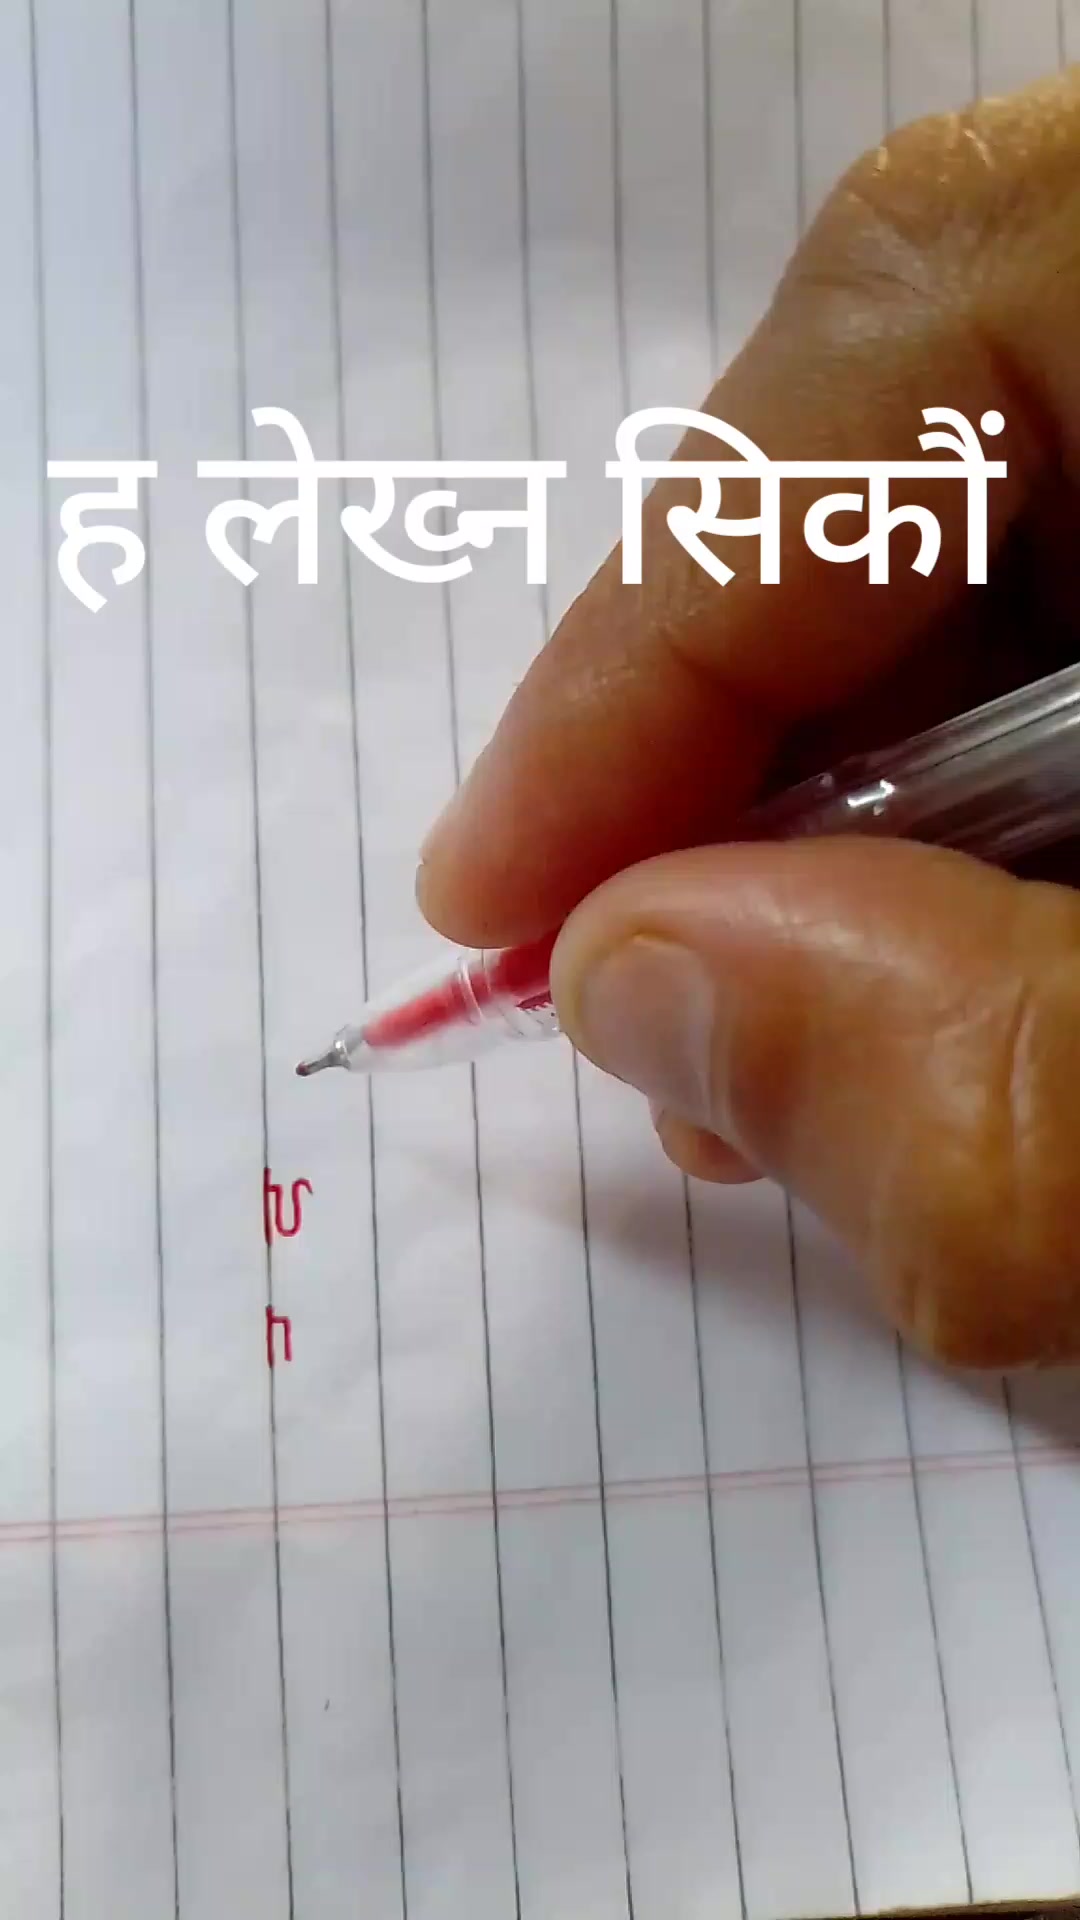 ह लेख्न सिकौं